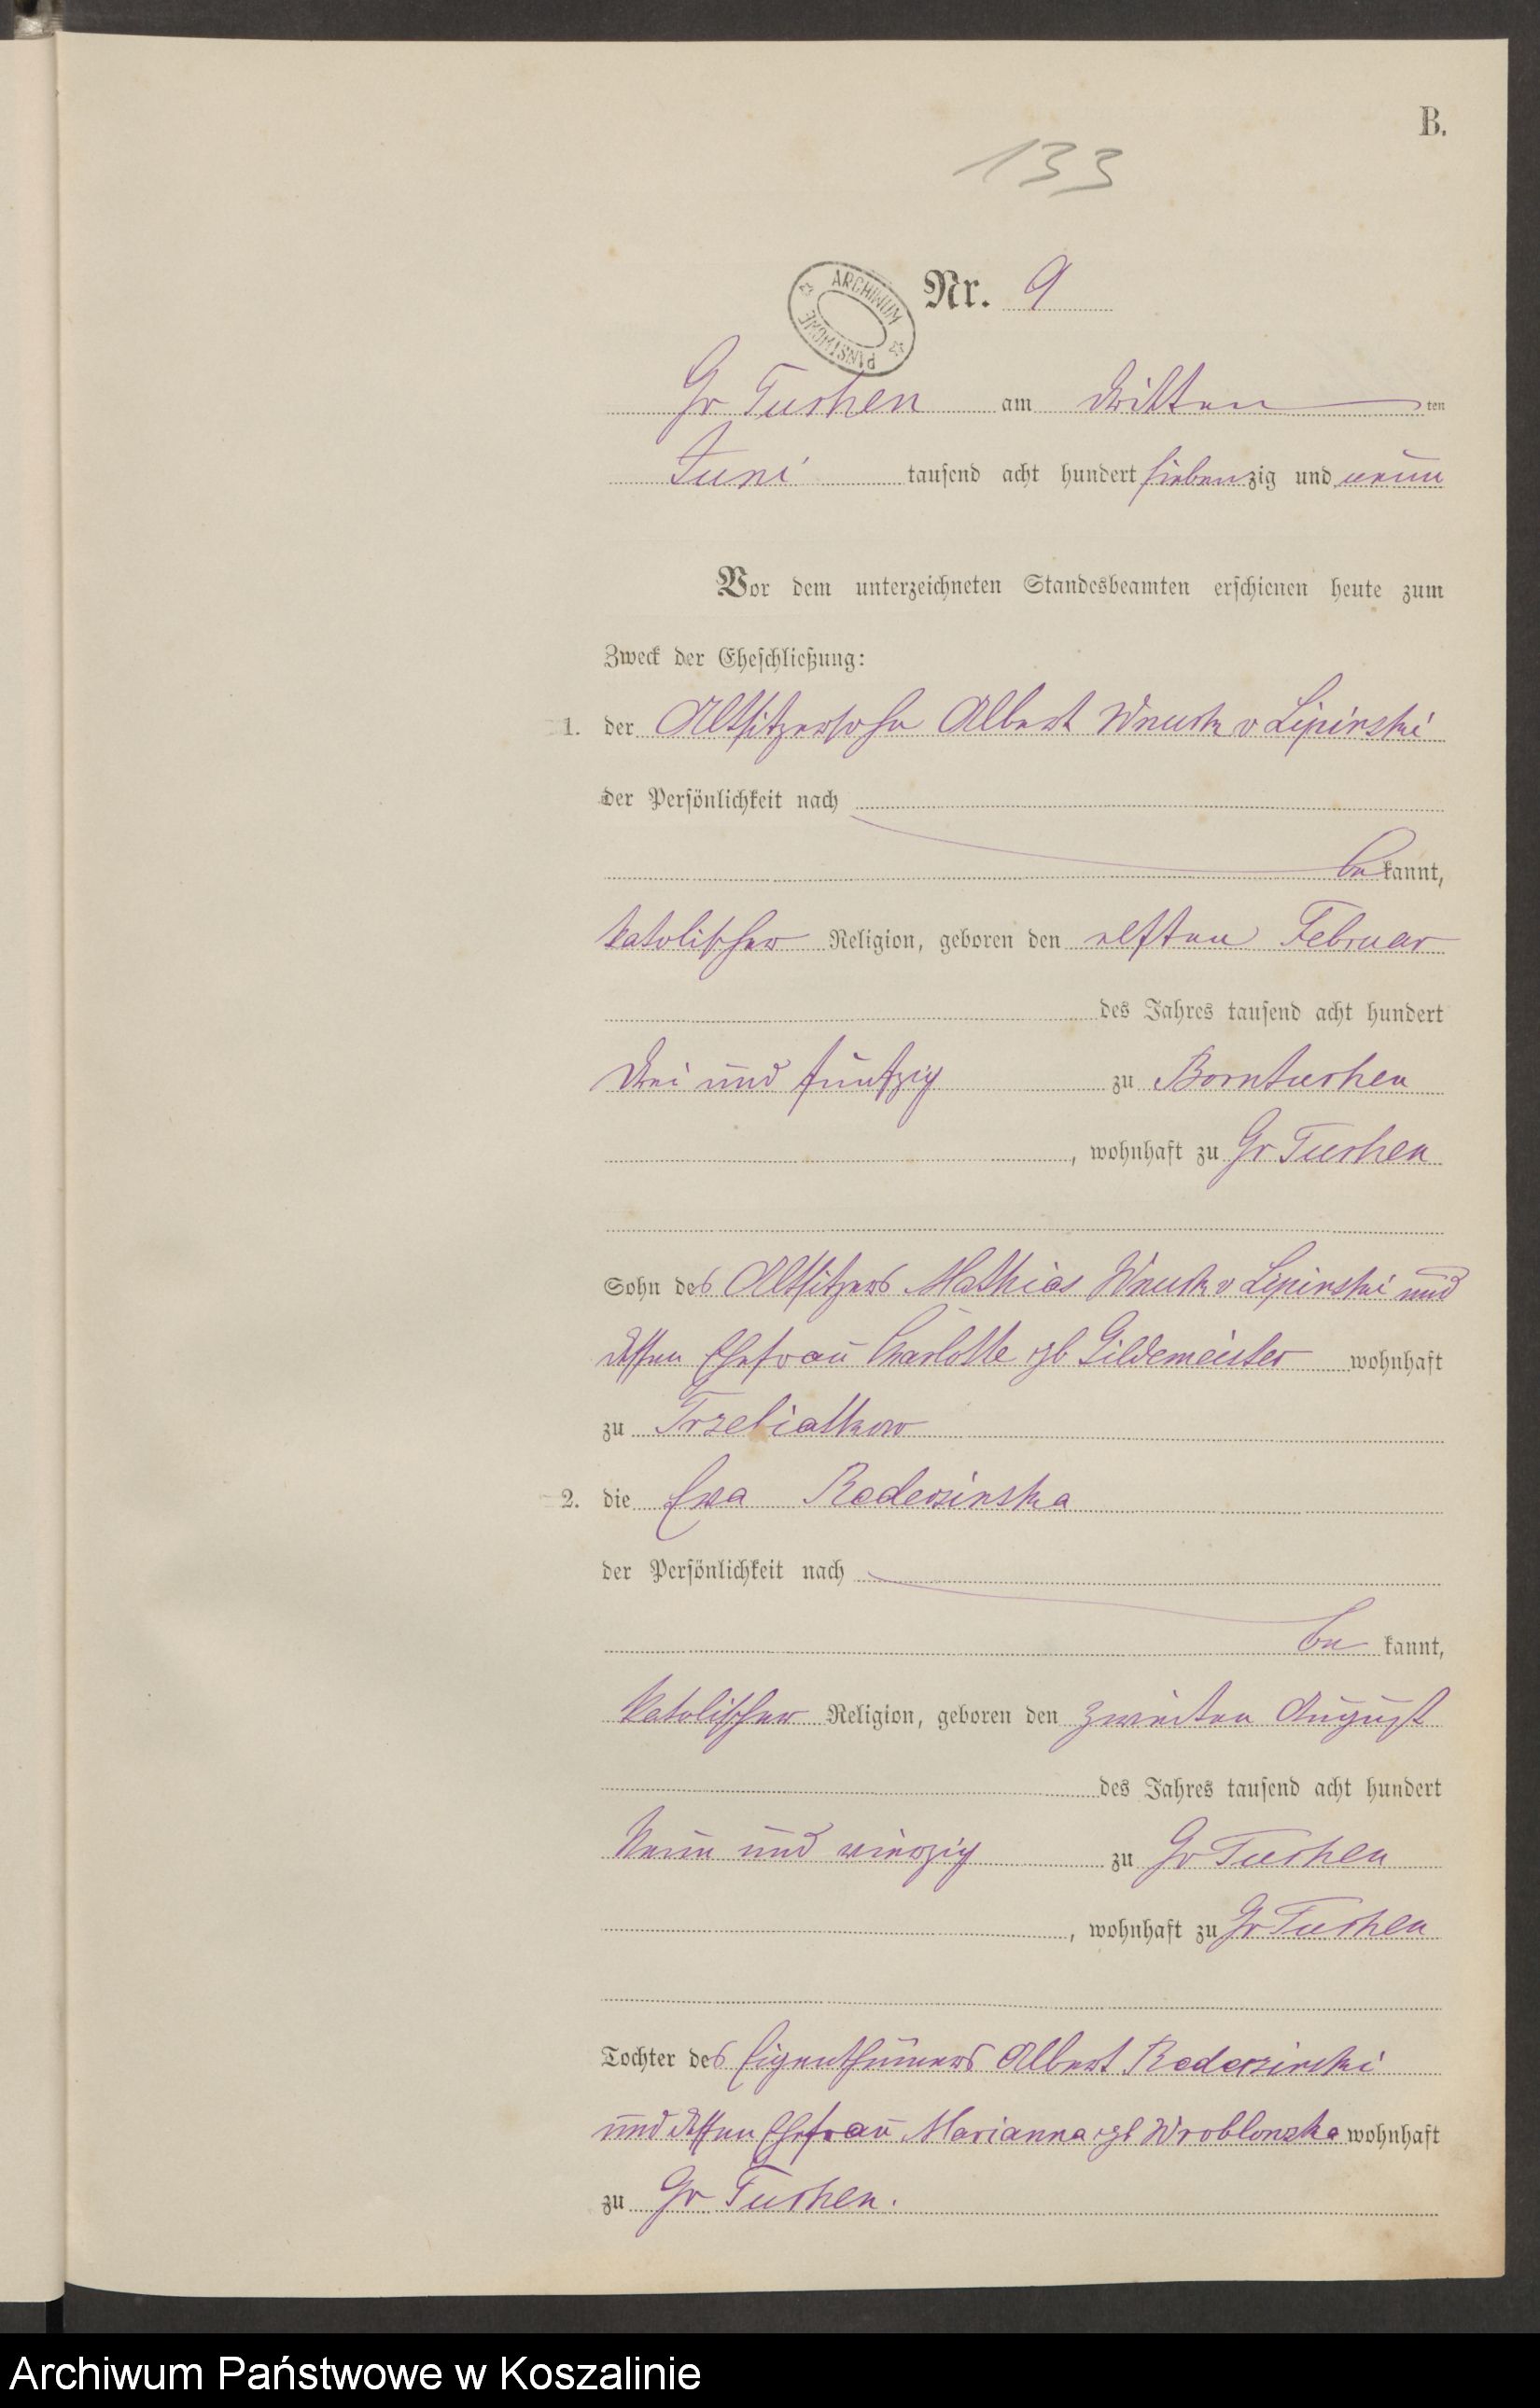 B.
133
ARCHIWUM PAŃSTWOWE
Nr. 9
Gr Tuchen am dritten ten
Juni tausend acht hundert siebenzig und neun
Vor dem unterzeichneten Standesbeamten erschienen heute zum
Zweck der Eheschließung:
1. der Altsitzersohn Albert Wnuck v Lipinski
der Persönlichkeit nach
bekannt,
katolischer Religion, geboren den elften Februar
des Jahres tausend acht hundert
drei und fünfzig zu Borntuchen
, wohnhaft zu Gr Tuchen
Sohn des Altsitzers Mathias Wnuck v Lipinski und
dessen Ehefrau Charlotte gb Gildemeister wohnhaft
zu Trzebiatkow
2. die Ewa
der Persönlichkeit nach
be kannt,
katolischer Religion, geboren den zweiten August
des Jahres tausend acht hundert
Neun und vierzig zu Gr Tuchen
, wohnhaft zu Gr Tuchen
Tochter des Eigenthümers Albert
und dessen Ehefrau Marianna gb wohnhaft
zu Gr Tuchen.
Archiwum Państwowe w Koszalinie